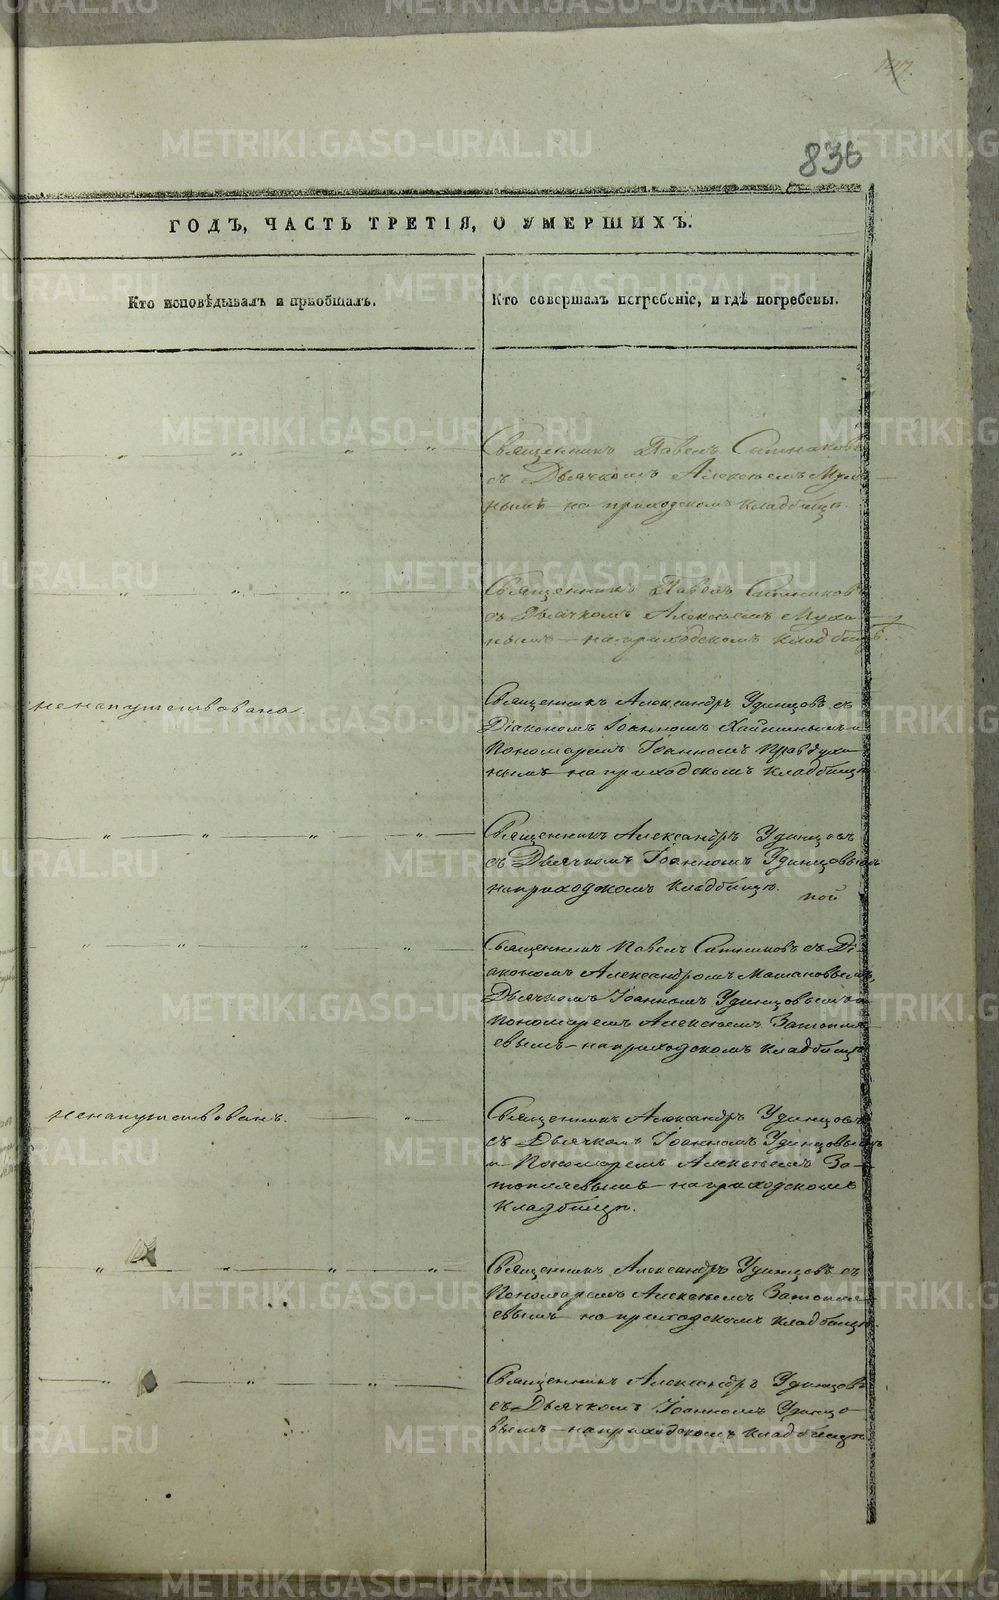 147.
836
ГОДЪ, ЧАСТЬ ТРЕТІЯ, О УМЕРШИХЪ.
Кто исповѣдывалъ и пріобщалъ.
Кто совершалъ погребеніе, и гдѣ погребены.
Священникъ Павелъ Ситниковъ
съ Дьячкомъ Алексѣемъ
нымъ на приходскомъ кладбищѣ.
Священникъ Павелъ Ситниковъ
съ Дьячкомъ Алексѣемъ Муха-
нымъ на приходскомъ кладбищѣ.
ненапутствована.
Священникъ Александръ Удинцовъ съ
Діакономъ Іоанномъ и
Пономаремъ Іоанномъ Правдухи-
нымъ на приходскомъ кладбищѣ
Священникъ Александръ Удинцовъ
съ Дьячкомъ Іоанномъ Удинцовымъ
на приходскомъ кладбищѣ.
Священникъ Павелъ Ситниковъ съ Ді-
акономъ Александромъ
Дьячкомъ Іоанномъ Удинцовымъ и
Пономаремъ Алексѣемъ Затопля-
евымъ на приходскомъ кладбищѣ
ненапутствованъ.
Священникъ Александръ Удинцовъ
съ Дьячкомъ Іоанномъ Удинцовымъ
и Пономаремъ Алексѣемъ За-
топляевымъ на приходскомъ
кладбищѣ.
Священникъ Александръ Удинцовъ съ
Пономаремъ Алексѣемъ Затопля-
евымъ на приходскомъ кладбищѣ.
Священникъ Александръ Удинцовъ
съ Дьячкомъ Іоанномъ Удинцо-
вымъ на приходскомъ кладбищѣ.
METRIKI.GASO-URAL.RU